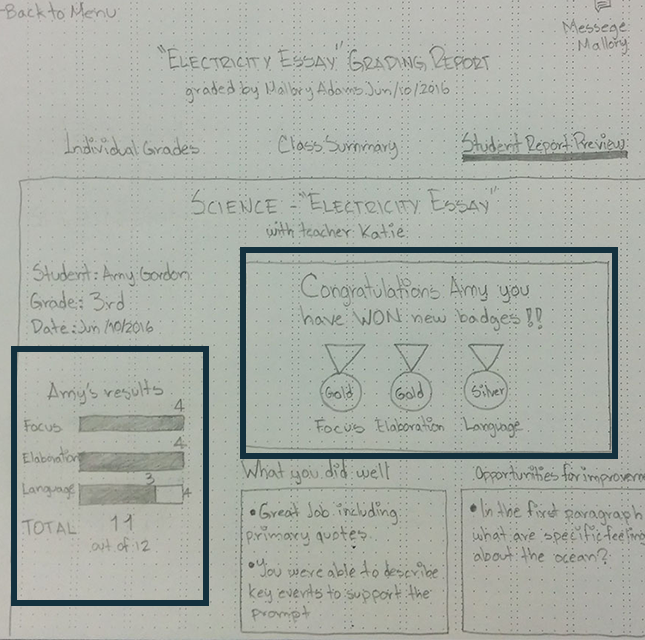 Back to Menu
Messege
Mallory
"ELECTRICITY ESSAY" GRADING REPORT
graded by Mallory Adams Jun/10/2016
Individual Grades
Class Summary
Student Report Preview
SCIENCE - "ELECTRICITY ESSAY"
with teacher Katie
Student: Amy Gordon
Grade: 3rd
Date: Jun/10/2016
Congratulations Amy you
have WON new badges!!
Gold Gold Silver
Focus Elaboration Language
Amy's results
4
Focus
4
Elaboration
3
Language 4
TOTAL 11
out of 12
What you did well
• Great Job including
primary quotes.
• You were able to describe
key events to support the
prompt
Opportunities for improvem
• In the first paragraph
what are specific feeling
about the ocean?